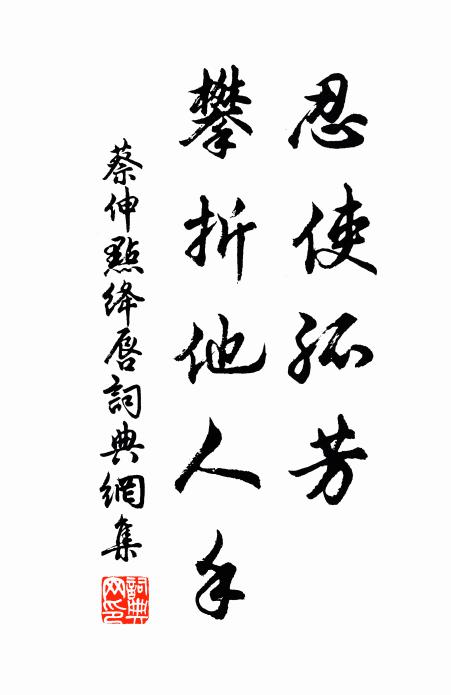 忍使孤芳
攀折他人手
蔡伸點絳唇詞典網集
詞典網印